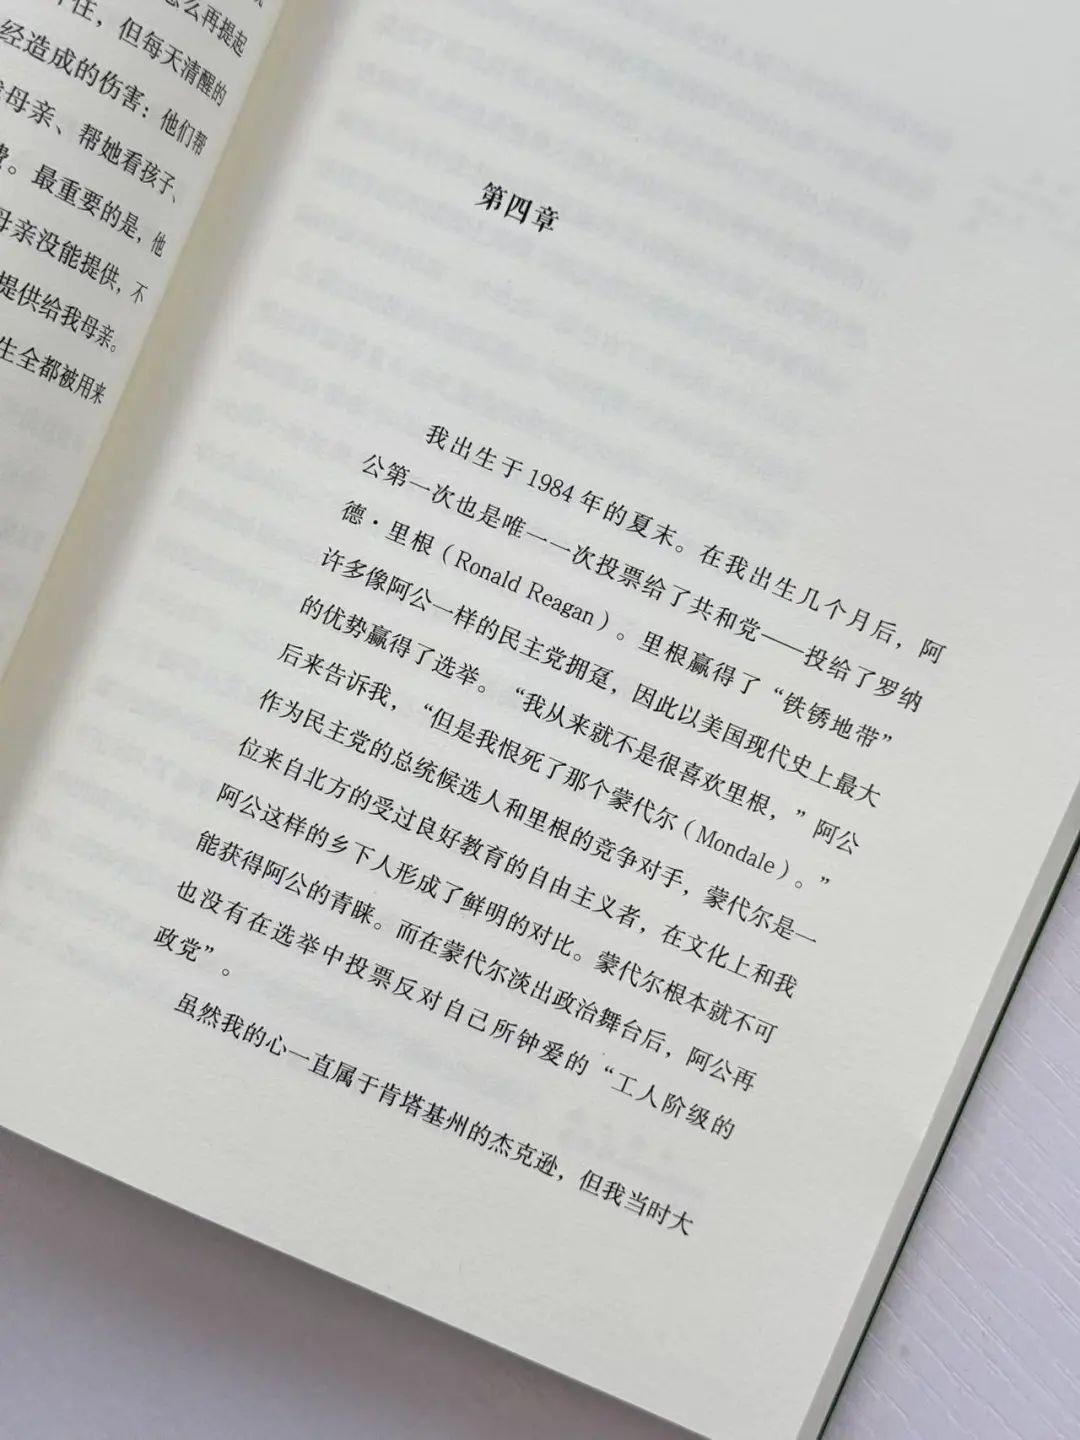 怎么再提起
住，但每天清醒的
经造成的伤害：他们帮
母亲、帮她看孩子、
费。最重要的是，他
母亲没能提供，不
提供给我母亲。
生全都被用来
第四章
我出生于1984年的夏末。在我出生几个月后，阿
公第一次也是唯一一次投票给了共和党——投给了罗纳
德·里根（Ronald Reagan）。里根赢得了“铁锈地带”
许多像阿公一样的民主党拥趸，因此以美国现代史上最大
的优势赢得了选举。“我从来就不是很喜欢里根，”阿公
后来告诉我，“但是我恨死了那个蒙代尔（Mondale）。”
作为民主党的总统候选人和里根的竞争对手，蒙代尔是一
位来自北方的受过良好教育的自由主义者，在文化上和我
阿公这样的乡下人形成了鲜明的对比。蒙代尔根本就不可
能获得阿公的青睐。而在蒙代尔淡出政治舞台后，阿公再
也没有在选举中投票反对自己所钟爱的“工人阶级的
政党”。
虽然我的心一直属于肯塔基州的杰克逊，但我当时大